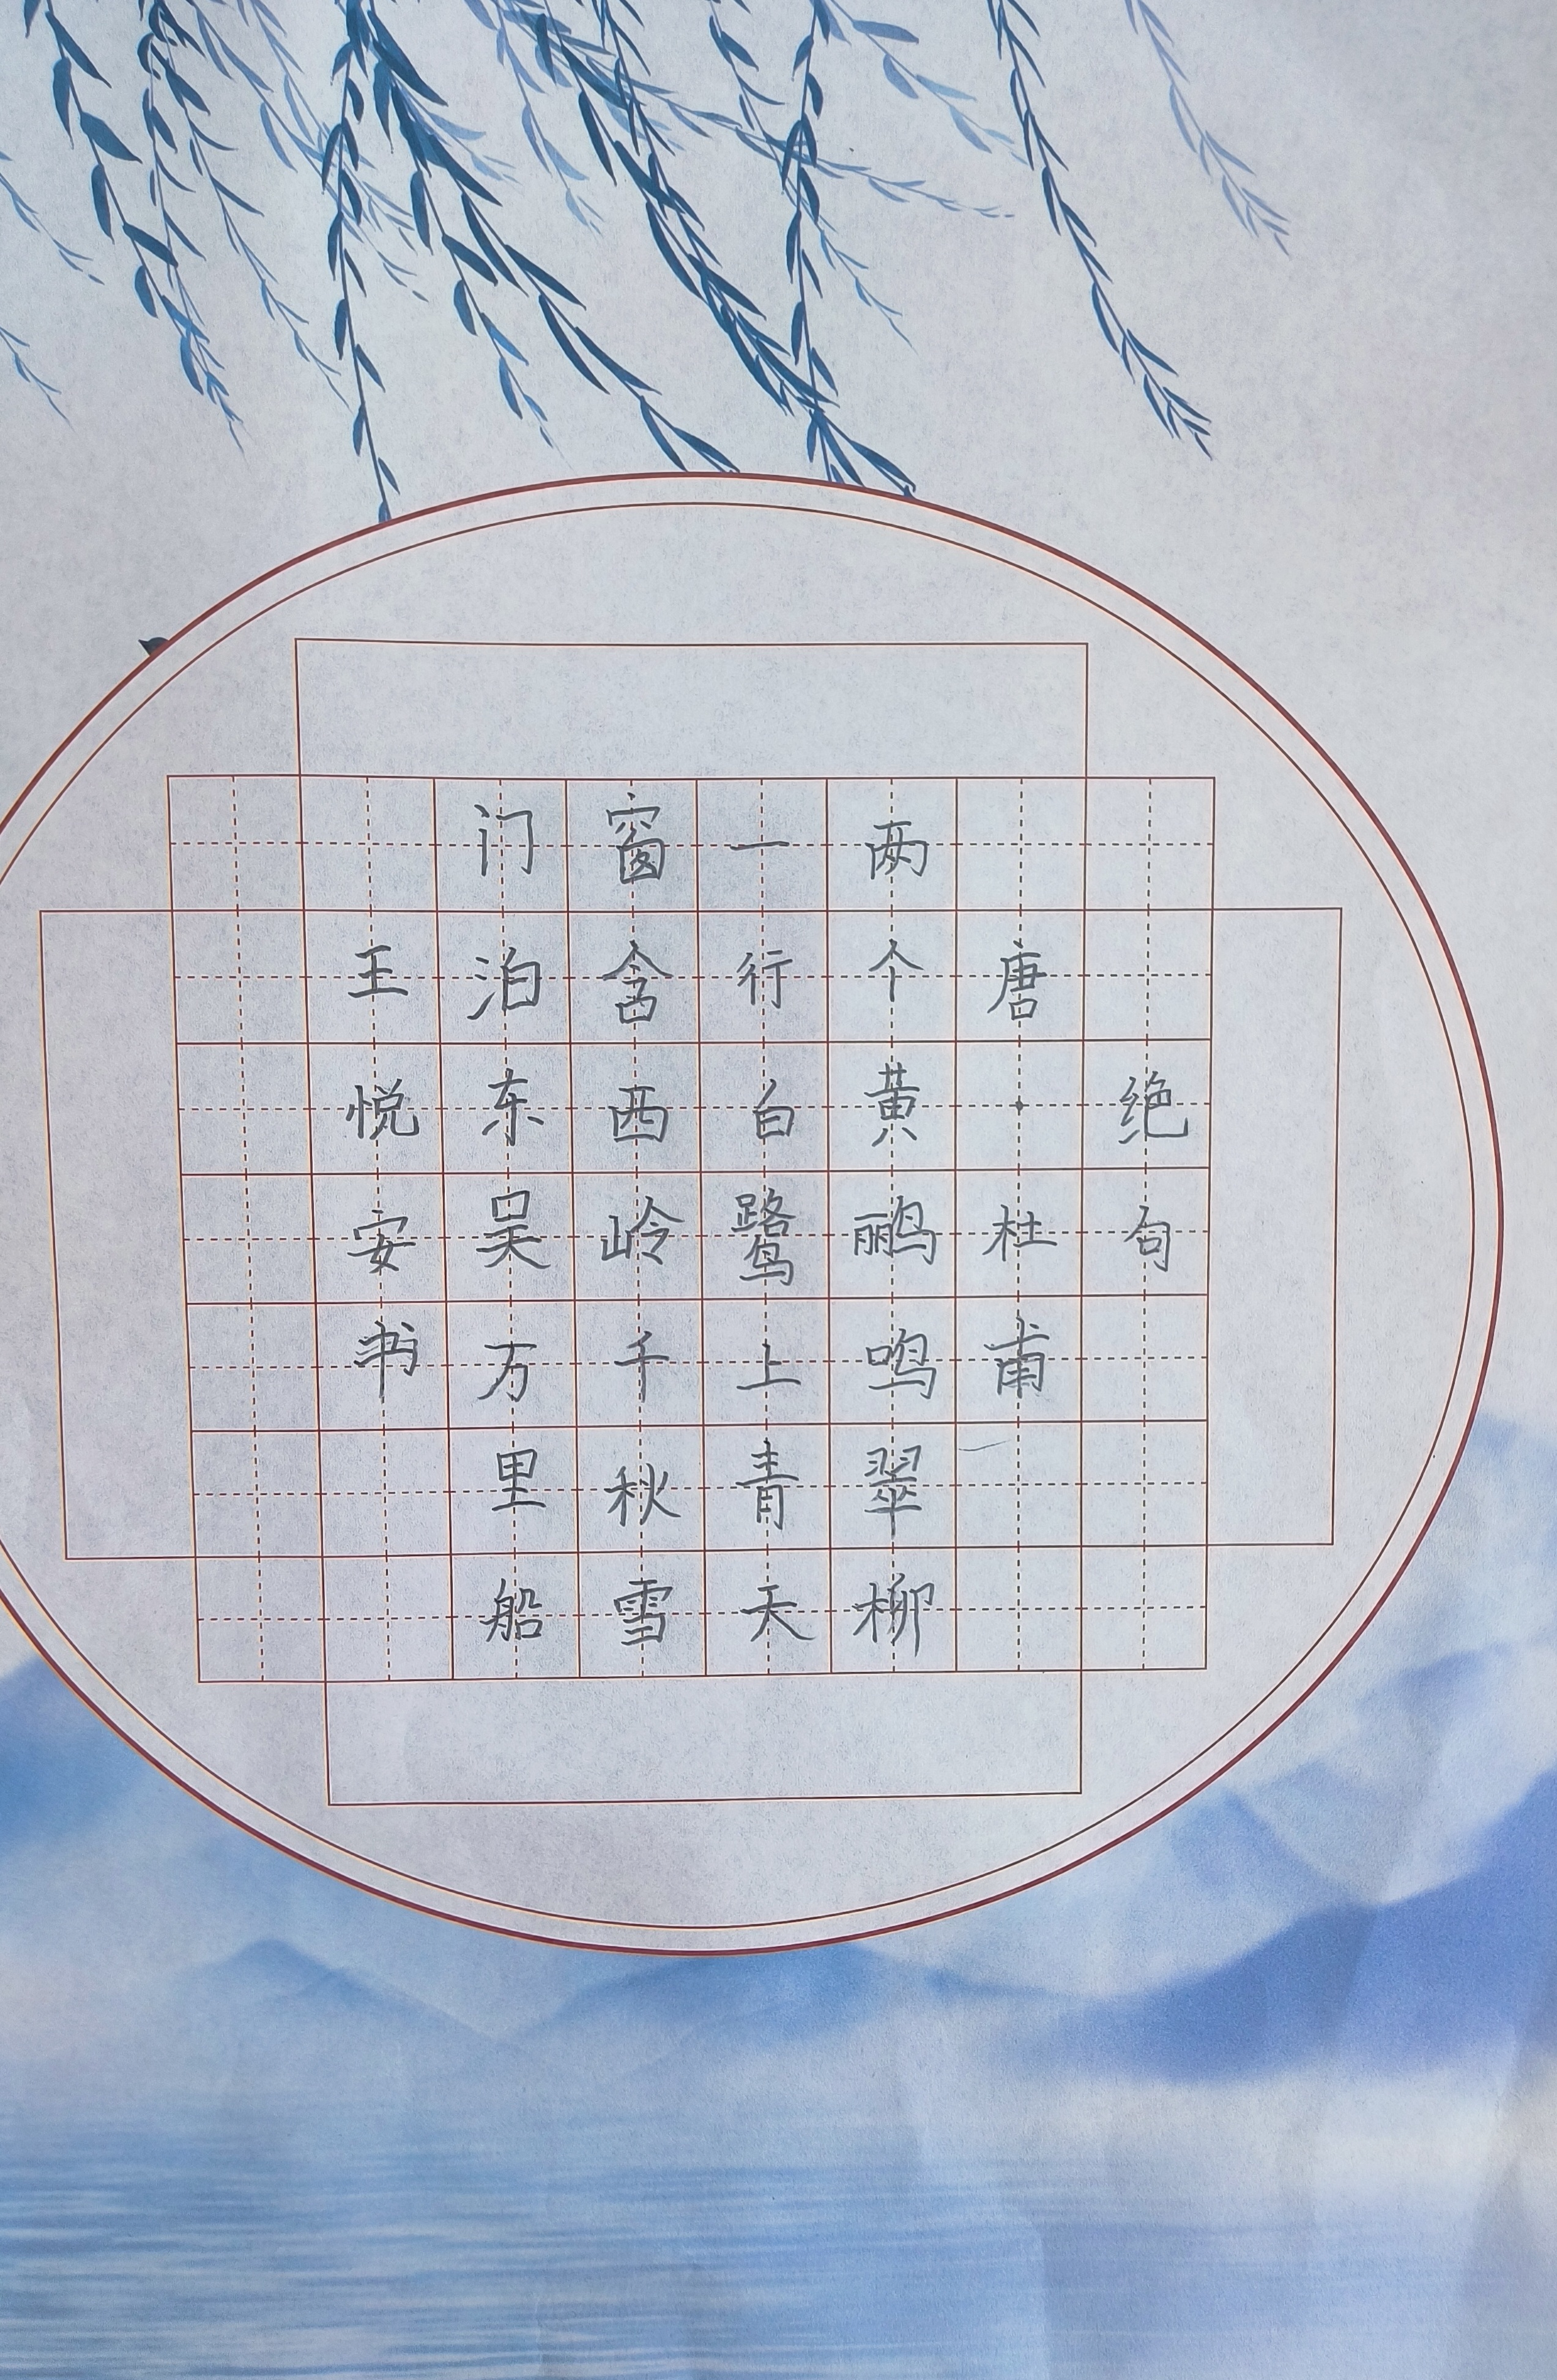 绝句
唐·杜甫
两个黄鹂鸣翠柳
一行白鹭上青天
窗含西岭千秋雪
门泊东吴万里船
王悦安书